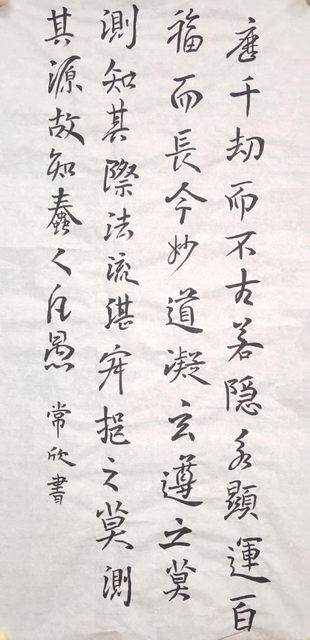 歷千劫而不古若隱若顯運百
福而長今妙道凝玄遵之莫
測知其際法流湛寂挹之莫測
其源故知蠢々凡愚 常欣書